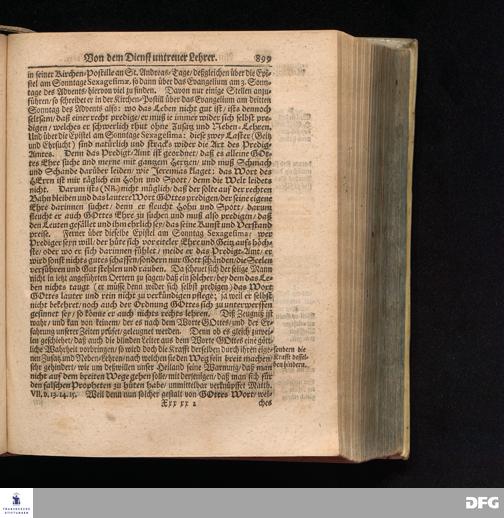 Von dem Dienst untreuer Lehrer. 899
in seiner Kirchen-Postille an St. Andreas-Tage/ deßgleichen über die Epi-
stel am Sonntage Sexagesimæ, so dann über das Evangelium am 3. Sonn-
tage des Advents/ hiervon viel zu finden. Davon nur einige Stellen anzu-
führen/ so schreibet er in der Kirchen-Postill über das Evangelium am dritten
Sonntag des Advents also: wo das Leben nicht gut ist/ ists dennoch
seltsam/ daß einer recht predige/ er muß je immer wider sich selbst pre-
digen/ welches er schwerlich thut ohne Zusatz und Neben-Lehren.
Und über die Epistel am Sonntage Sexagesimæ: diese zwey Laster (Geitz
und Ehrsucht) sind natürlich und stracks wider die Art des Predigt-
Amtes. Denn das Predigt-Amt ist geordnet/ daß es alleine GOt-
tes Ehre suche und meine mit gantzem Hertzen/ und muß Schmach
und Schande darüber leiden/ wie Jeremias klaget: das Wort des
HErrn ist mir täglich ein Hohn und Spott/ denn die Welt leidets
nicht. Darum ists (NB.) nicht müglich/ daß der solte auf der rechten
Bahn bleiben und das lautere Wort GOttes predigen/ der seine eigene
Ehre darinnen suchet/ denn er fleucht Hohn und Spott/ darum
fleucht er auch GOttes Ehre zu suchen und muß also predigen/ daß
den Leuten gefället und ihm ehrlich sey/ das seine Kunst und Verstand
preise. Ferner über dieselbe Epistel am Sonntag Sexagesima: wer
Prediger seyn will/ der hüte sich vor eiteler Ehre und Geitz aufs höch-
ste/ oder wo er sich darinnen fühlet/ meide er das Predigt-Amt/ er
wird sonst nichts gutes schaffen/ sondern nur Gott schänden/ die Seelen
verführen und Gut stehlen und rauben. Da scheuet sich der selige Mann
nicht in letzt angeführten Oertern zu sagen/ daß ein solcher/ bey dem das Le-
ben nichts taugt (er müsse denn wider sich selbst predigen) das Wort
GOttes lauter und rein nicht zu verkündigen pflege; ja weil er selbst
nicht bekehret/ noch auch der Ordnung GOttes sich zu unterwerffen
gesinnet sey/ so könne er auch nichts rechts lehren. Diß Zeugniß ist
wahr/ und kan von keinem/ der es nach dem Worte GOttes/ und der Er-
fahrung unserer Zeiten prüfet/ geleugnet werden. Denn ob es gleich zuwei-
len geschiehet/ daß auch die blinden Leiter aus dem Worte GOttes eine gött-
liche Wahrheit vorbringen/ so wird doch die Krafft derselben durch ihren eige-
nen Zusatz und Neben-Lehren/ nach welchen sie den Weg fein breit machen/
sehr gehindert/ wie um deßwillen unser Heiland seine Warnung/ daß man
nicht auf dem breiten Wege gehen solle/ mit derjenigen/ daß man sich für
den falschen Propheten zu hüten habe/ unmittelbar verknüpffet Matth.
VII, v. 13. 14. 15. Weil denn nun solcher gestalt von GOttes Wort/ wel-
Xxx xx 2 ches
sondern die
Krafft dessel-
ben hindern.
FRANCKESCHE
STIFTUNGEN
DFG